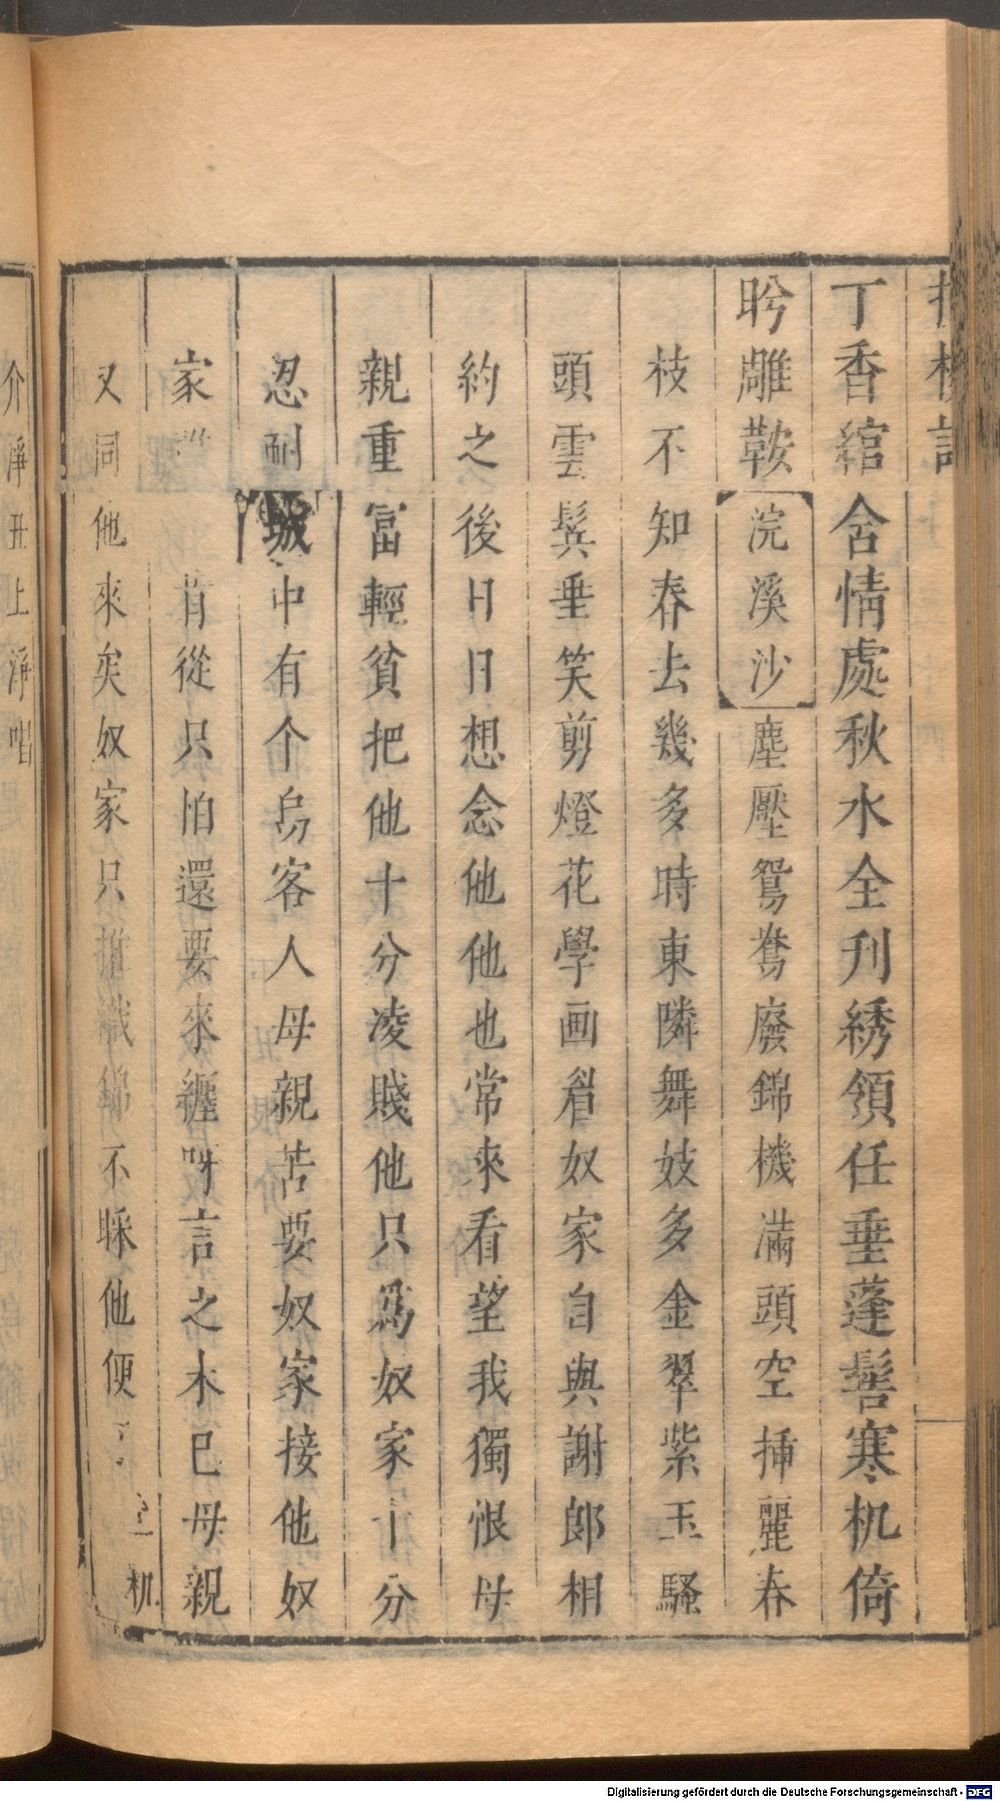 丁香綰含情處秋水全刋綉領任垂蓬髻寒机倚
盻雕鞍浣溪沙塵壓鴛鴦廢錦機滿頭空挿麗春
枝不知春去幾多時東隣舞妓多金翠紫玉騷
頭雲鬂垂笑剪燈花學画眉奴家自與謝郎相
約之後日日想念他他也常來看望我獨恨母
親重富輕貧把他十分凌賤他只為奴家十分
忍耐城中有个烏客人母親苦要奴家接他奴
家肯從只怕還要來纏訝言之未已母親
又同他來矣奴家只推織綿不睬他便机
介淨丑上淨唱
Digitalisierung gefördert durch die Deutsche Forschungsgemeinschaft - DFG